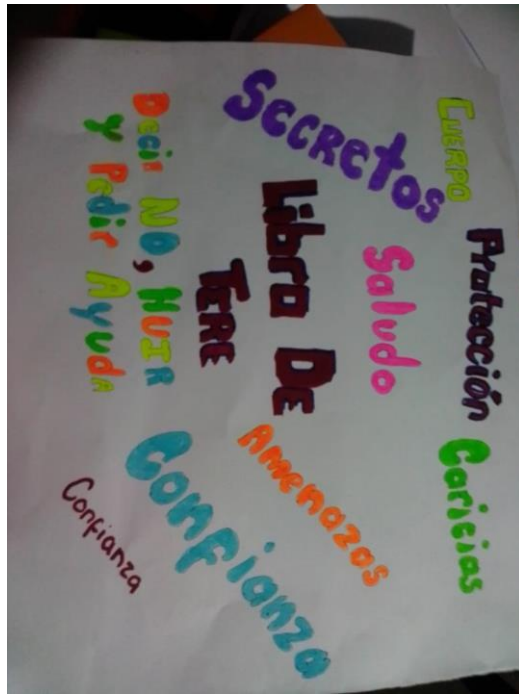 Cuerpo
Protección
Caricias
Secretos
Saludo
Libro De
Tere
Amenazas
Decir NO, Huir
y Pedir Ayuda
Confianza
Confianza